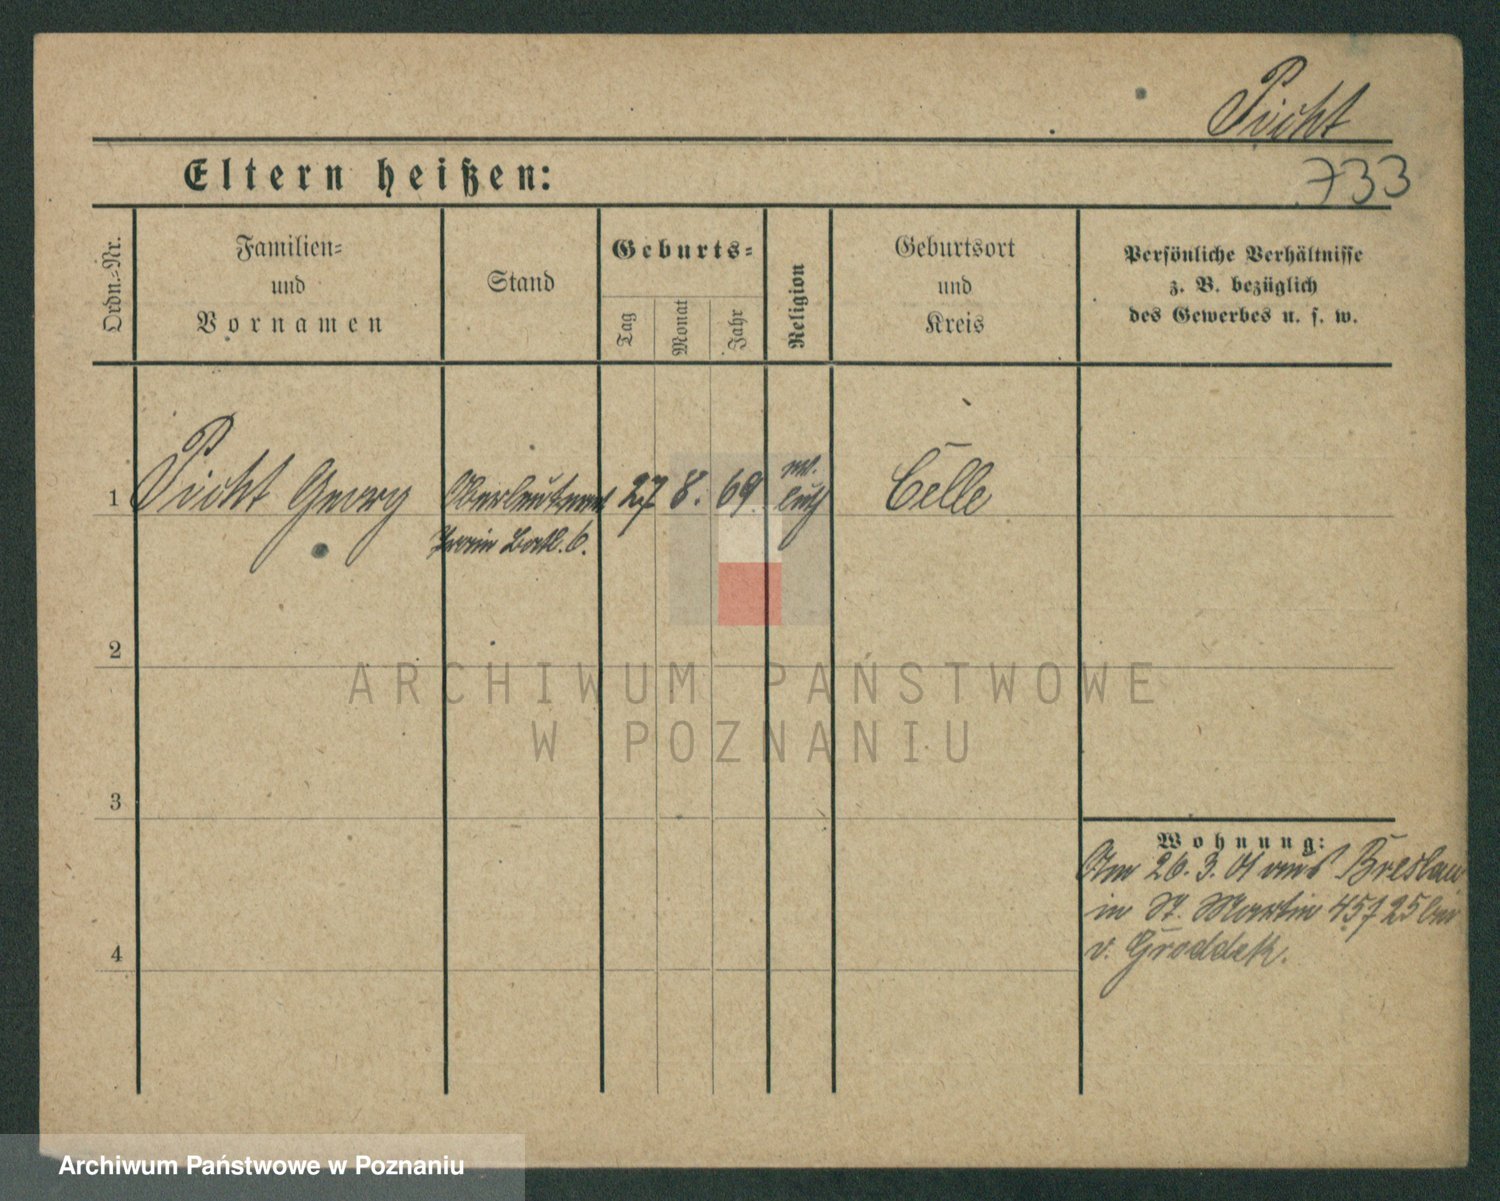 Picht
Eltern heißen:
733
Ordn.-Nr.
Familien-
und
Vornamen
Stand
Geburts-
Tag
Monat
Jahr
Religion
Geburtsort
und
Kreis
Persönliche Verhältnisse
z. B. bezüglich
des Gewerbes u. s. w.
1 Picht Georg Oberleutnant 27 8. 69. luth Celle
Train Batl. 6.
2
3
4
Wohnung:
Am 26. 3. 01 aus Breslau
in St. Martin 45 25 bei
v. Groddek.
ARCHIWUM PAŃSTWOWE
W POZNANIU
Archiwum Państwowe w Poznaniu